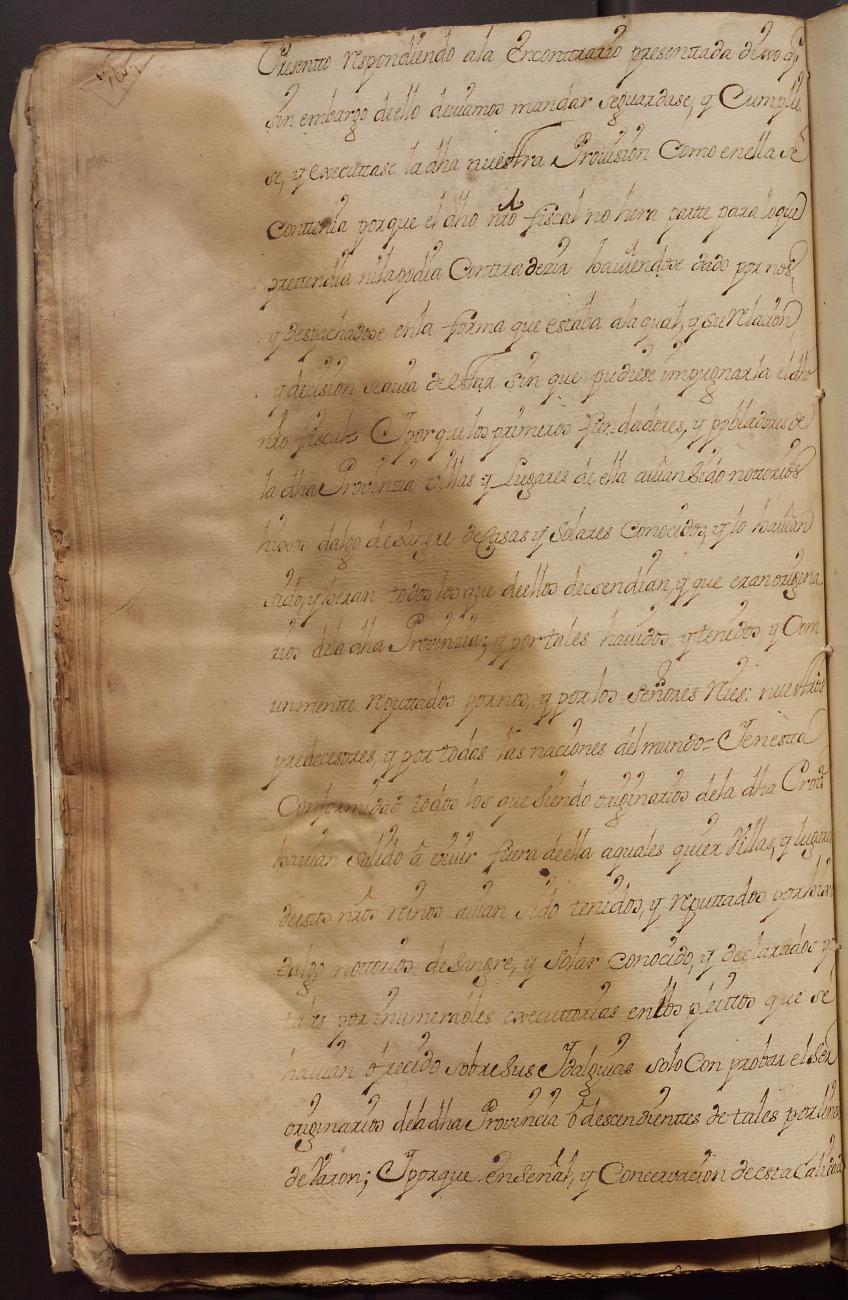 Presento respondiendo ala Encontrario presentada dixo q̃,
sin embargo de ello deviamos mandar seguardase, y Cumplie
se, y executtase la dha nuestra Provision Como enella se
Contenia porque el dho nr̃o fiscal no hera parte para loque
prettendia nilapodia Contradezir haviendose dado por nos,
y despachadose enla forma que estaba ala qual, y su relacion
y decision se avia de estar sin que pudiese impugnarla el dho
nr̃o fiscal= Y porque los primeros fundadores, y pobladores de
la dha Provinzia Villas y Lugares de ella avian sido nottorios
hijos dalgo de Sangre de Casas y Solares Conocidos, y lo havian
sido, y heran todos los que de ellos decsendian, y que eran origina
rios dela dha Provinzia; y por tales havidos, y tenidos, y Com
unmente reputtados por nos, y por los señores Rıes: nuestros
predecesores, y por todas las naciones del mundo= Y en esta
Conformidad todos los que siendo originarios dela dha Prov.ª
havian salido â vivir fuera de ella aquales quier Villas, y lugares
destos nr̃os reinos avian sido tenidos, y reputtados por hijos
dalgo nottorios de Sangre, y solar Conocido, y declarados p.
tales por inumerables executtorias en los pleittos que se
havian ofrecido sobre sus Ydalguias solo Con probar el ser
originarios dela dha Provincia ô descendientes de tales por linea
de Varon; Y porque en señal, y Concervacion de esta Calidad